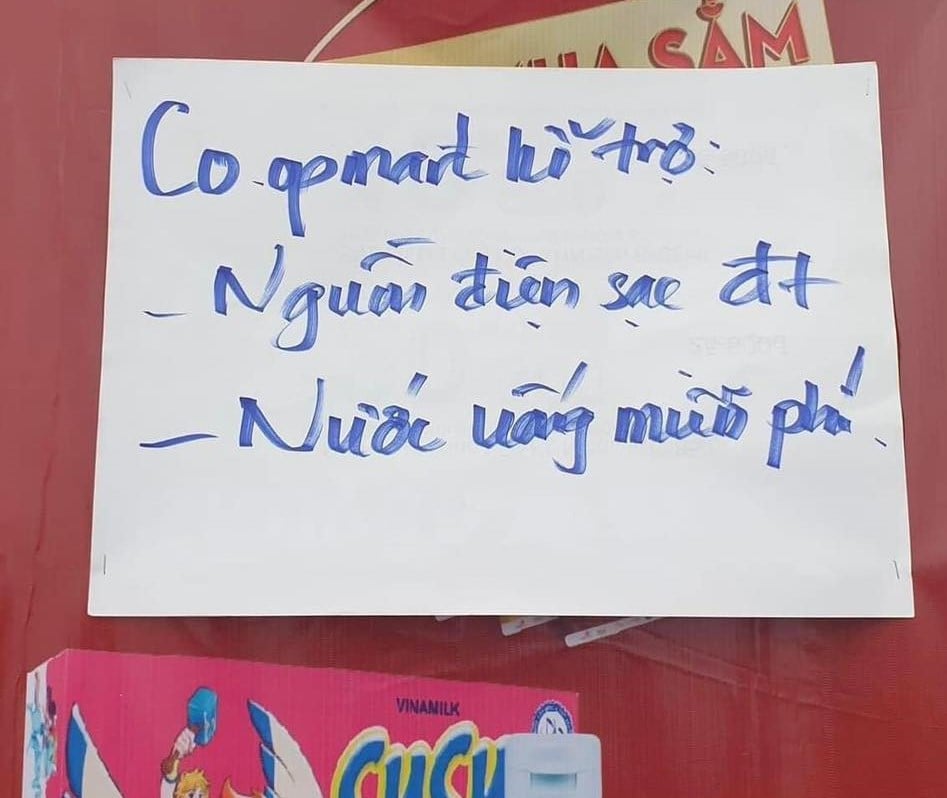 SẮM
Co.opmart hỗ trợ:
- Nguồn điện sạc đt
- Nước uống miễn phí.
VINAMILK